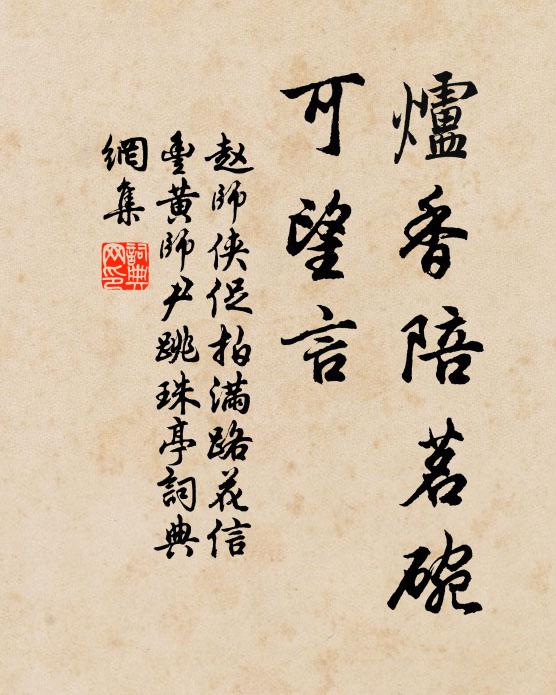 爐香陪茗碗
可望言
赵師侠促拍满路花信
豐黄師尹跳珠亭詞典
網集
詞典網印